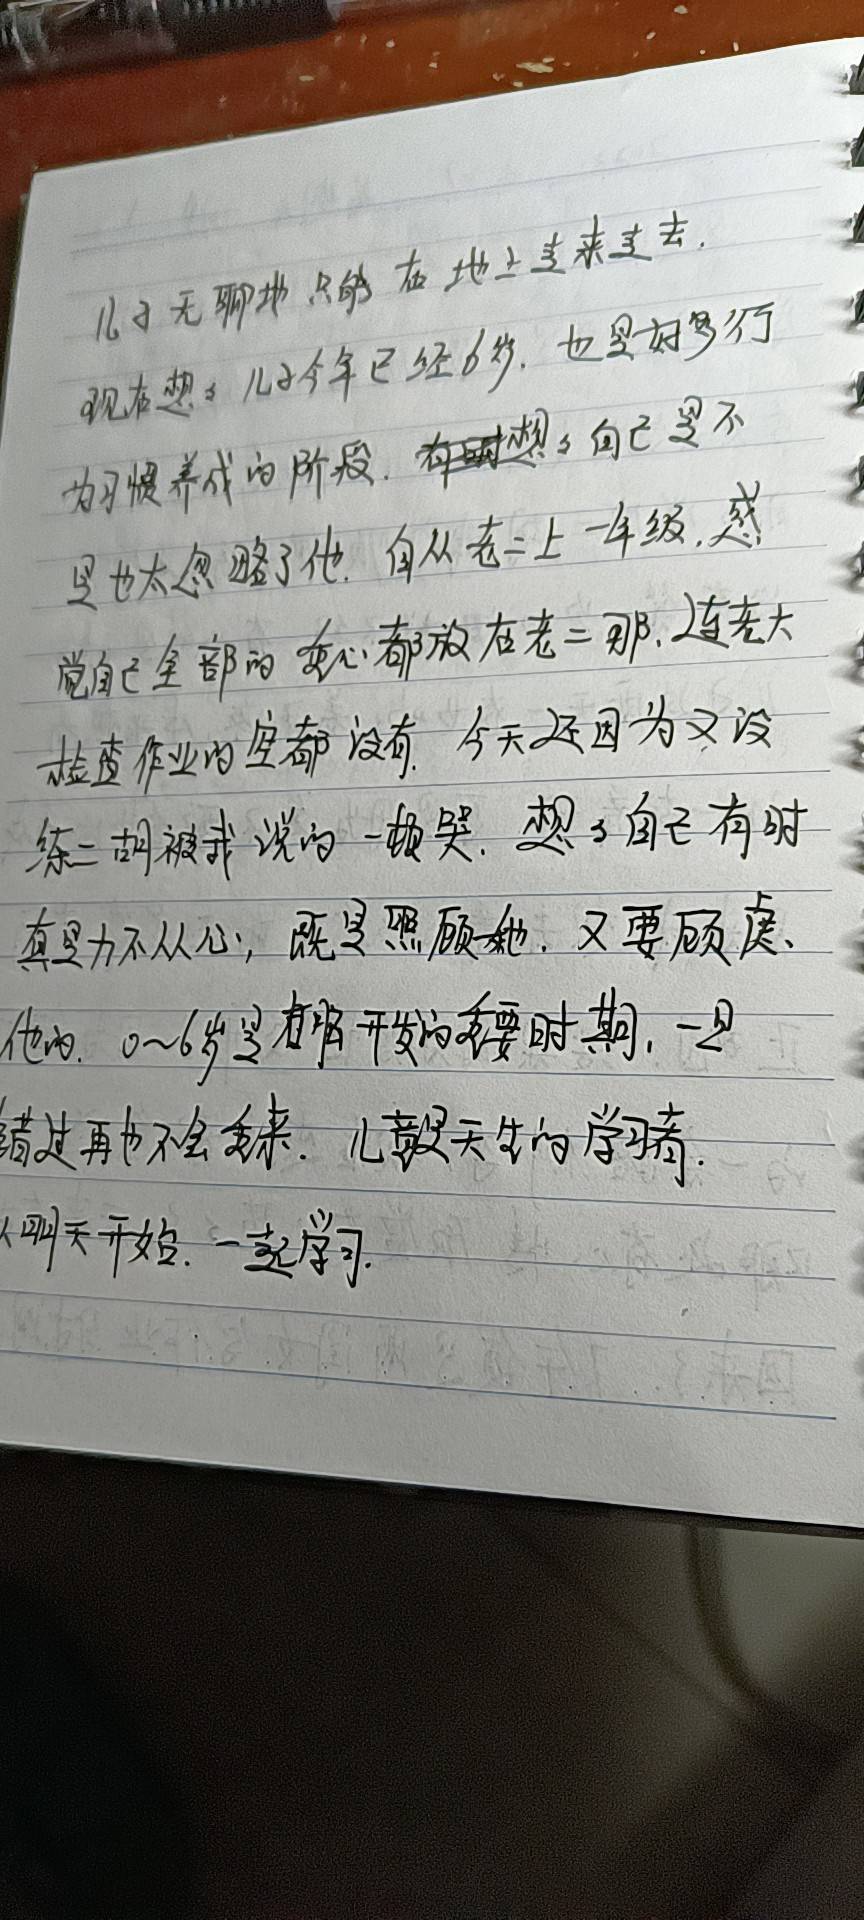 儿子无聊地只能在地上走来走去.
现在想想儿子今年已经6岁.也是好多行
为习惯养成的阶段.有时想想自己是不
是也太忽略了他.自从老二上一年级.感
觉自己全部的重心都放在老二那、连老大
检查作业的空都没有.今天还因为又没
练二胡被我说的一顿哭.想想自己有时
真是力不从心,既是照顾她.又要顾虑、
他的.0～6岁是右脑开发的重要时期,一旦
错过再也不会重来.儿童是天生的学习者.
从明天开始.一起学习.